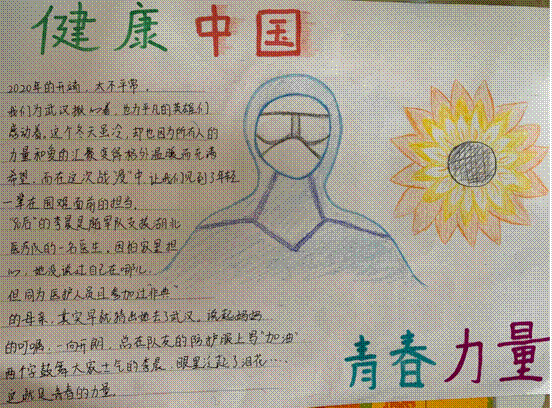 健康中国
2020年的开端，太不平常，
我们为武汉揪心着，也为平凡的英雄们
感动着，这个冬天虽冷，却也因为所有人的
力量和爱的汇聚变得格外温暖而充满
希望，而在这次战"疫"中，让我们见到了年轻
一辈在困难面前的担当。
"90后"的李晨是随军队支援湖北
医疗队的一名医生，因怕家里担
心，她没说过自己在哪儿，
但同为医护人员且参加过"非典"
的母亲，其实早就猜出她去了武汉。说起妈妈
的叮嘱，一向开朗，总在队友的防护服上写"加油"
两个字鼓舞大家士气的李晨，眼里泛起了泪花……
这就是青春的力量。
青春力量